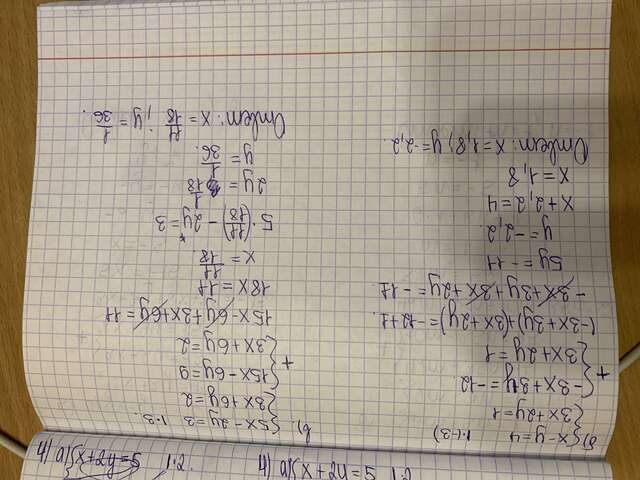 б) { x-y=4 |·(-3)
3x+2y=1
+ { -3x+3y=-12
3x+2y=1
(-3x+3y)+(3x+2y)=-12+1
-3x+3y+3x+2y=-11
5y=-11
y=-2,2
x+2,2=4
x=1,8
Ответ: x=1,8; y=-2,2.
в) { 5x-2y=3 |·3.
3x+6y=2
+ { 15x-6y=9
3x+6y=2
15x-6y+3x+6y=11
18x=11
x=11/18.
5·(11/18)-2y=3
2y=1/18
y=1/36.
Ответ: x=11/18; y=1/36.
4) a) { x+2y=5 |·2.
4) a) { x+2y=5 |·2